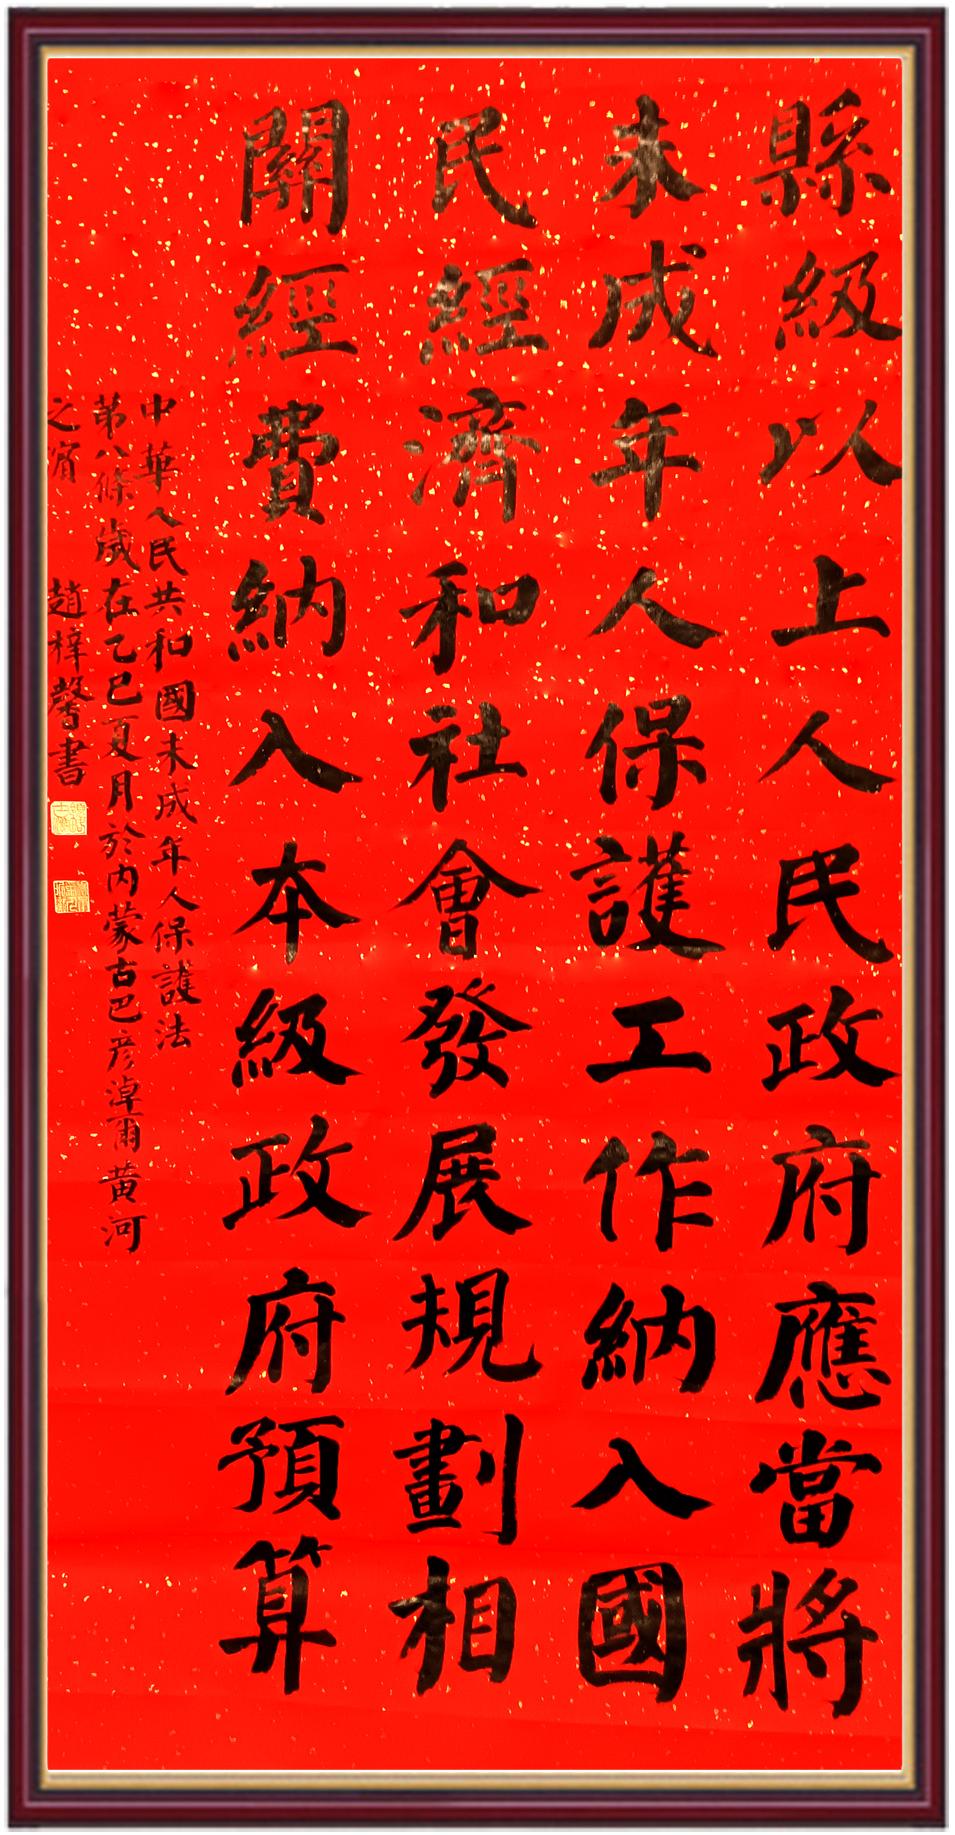 縣級以上人民政府應當將
未成年人保護工作納入國
民經濟和社會發展規劃相
關經費納入本級政府預算
中華人民共和國未成年人保護法
第八條歲在乙巳夏月於內蒙古巴彦淖爾黄河
之濱 趙梓馨書